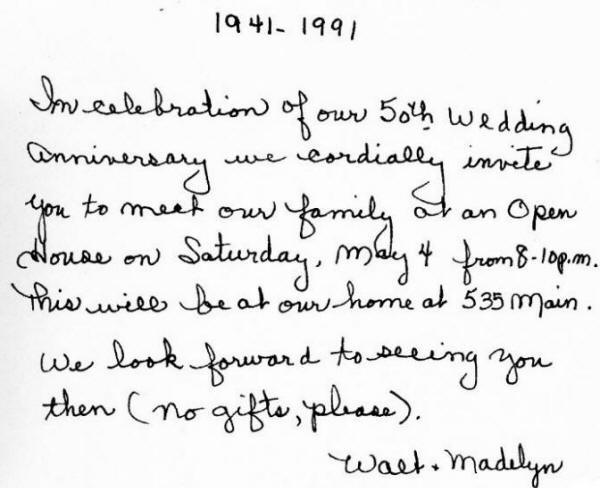 1941-1991
In celebration of our 50th Wedding
Anniversary we cordially invite
you to meet our family at an Open
House on Saturday, May 4 from 8-10p.m.
This will be at our home at 535 Main.
We look forward to seeing you
then (no gifts, please).
Walt + Madelyn